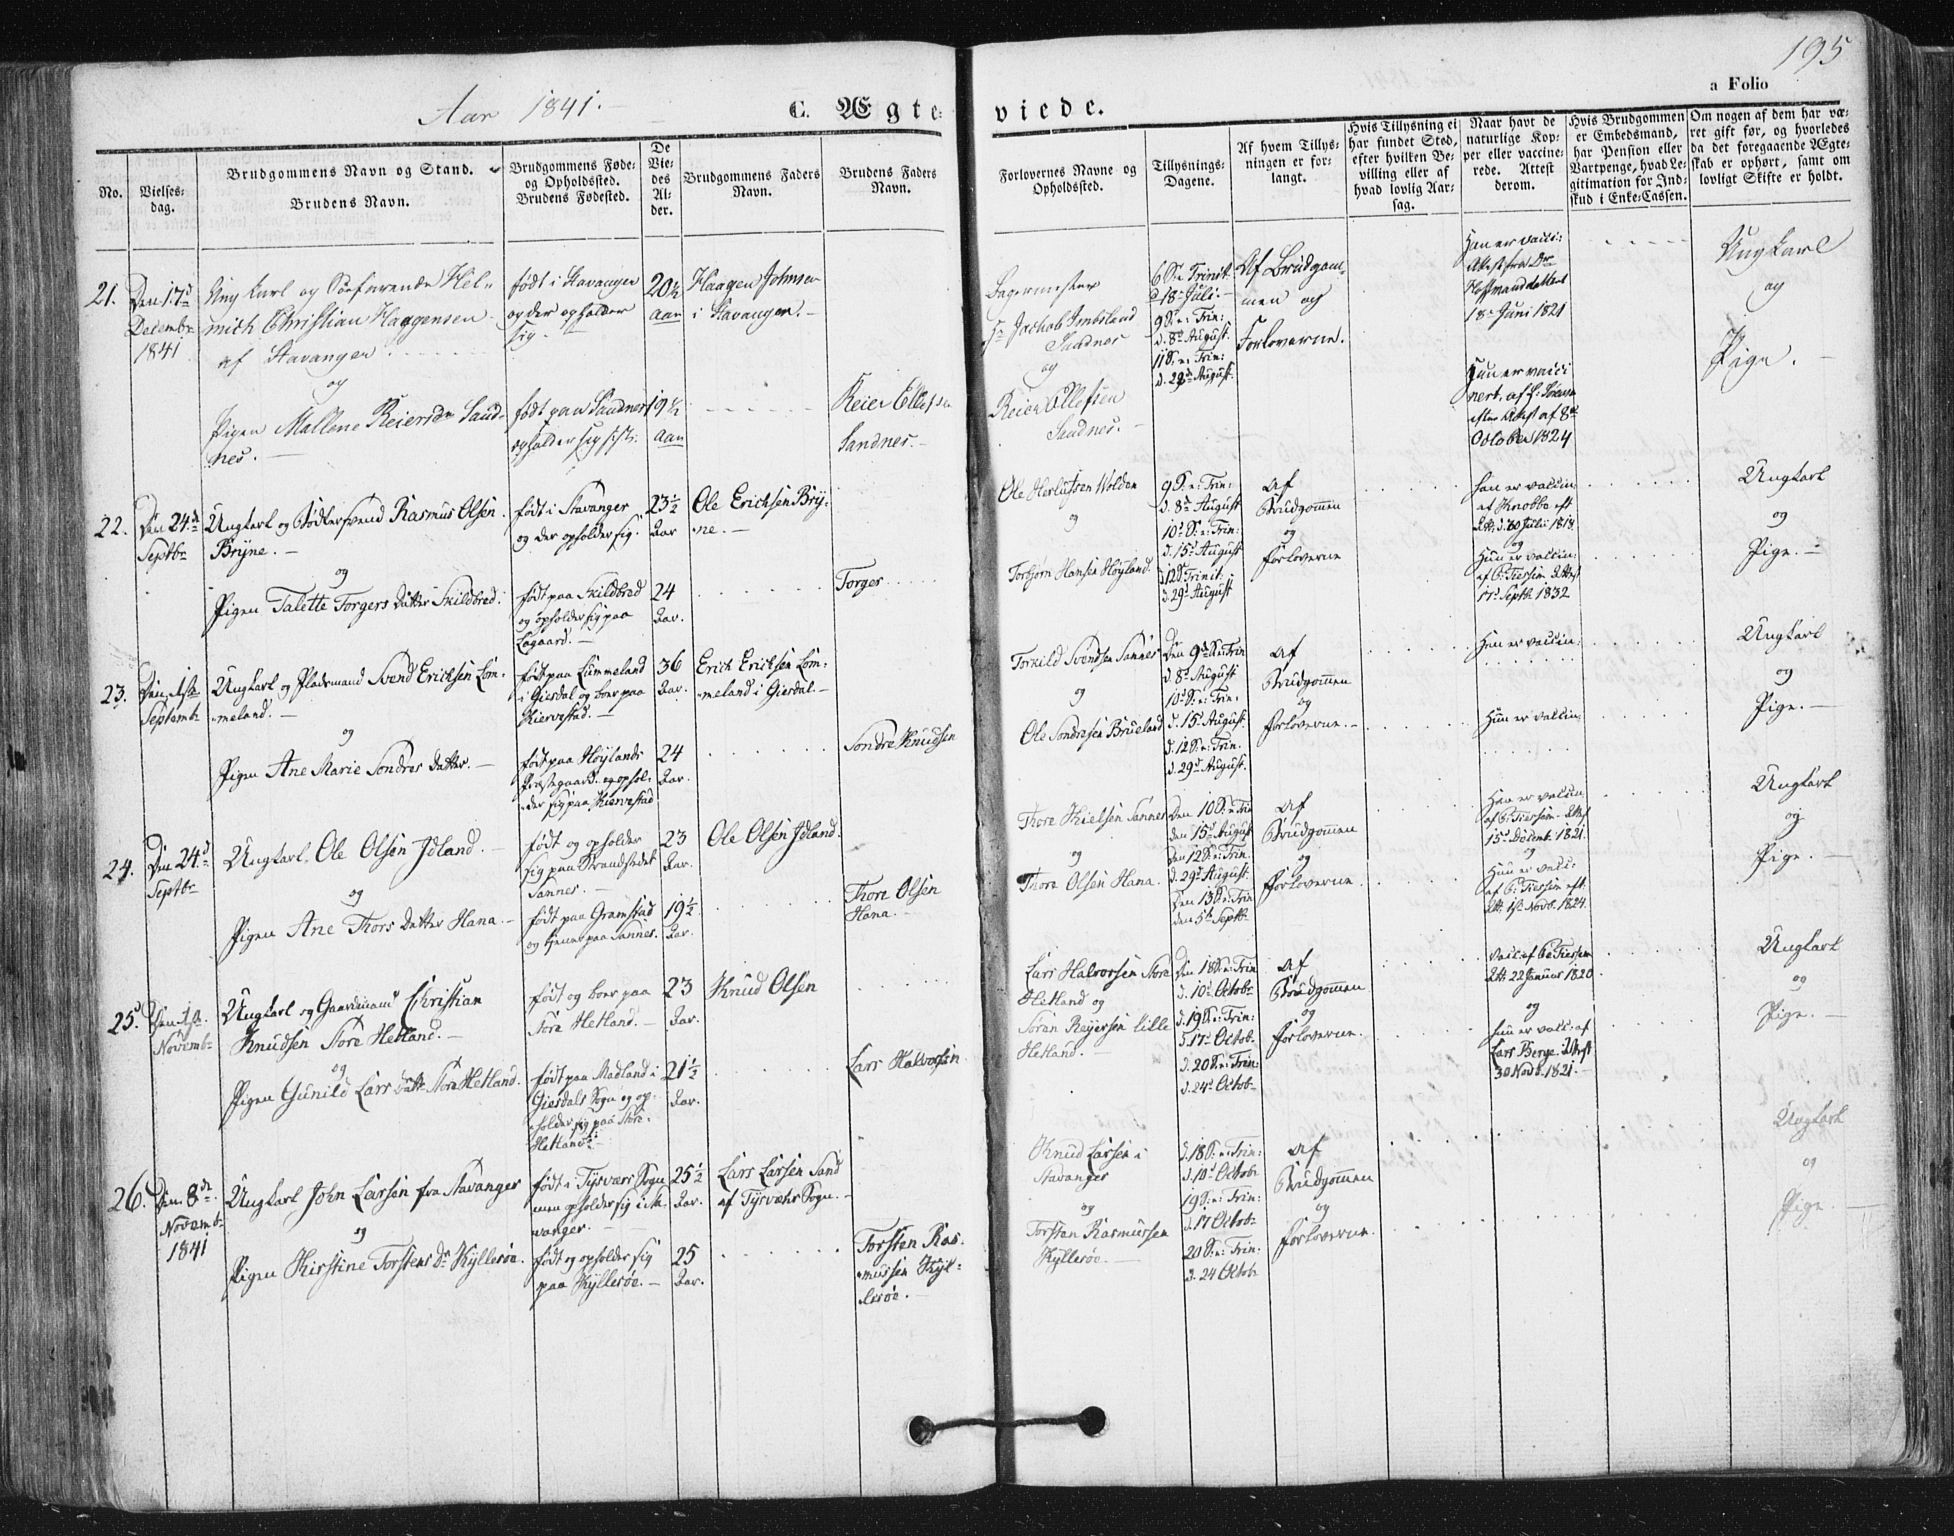 Aar 1841.
C. Ægte-
viede.
195
a Folio
No.
Vielses-
dag.
Brudgommens Navn og Stand.
Brudens Navn.
Brudgommens Føde-
og Opholdssted.
Brudens Fødested.
De
Vie-
des
Al-
der.
Brudgommens Faders
Navn.
Brudens Faders
Navn.
Forlovernes Navne og
Opholdssted.
Tillysnings-
Dagene.
Af hvem Tillys-
ningen er for-
langt.
Hvis Tillysning ei
har fundet Sted,
efter hvilken Be-
villing eller af
hvad lovlig Aar-
sag.
Naar havt de
naturlige Kop-
per eller vaccine-
rede. Attest
derom.
Hvis Brudgommen
er Embedsmand,
har Pension eller
Vartpenge, hvad Le-
gitimation for Ind-
skud i Enke-Cassen.
Om nogen af dem har væ-
ret gift før, og hvorledes
da det foregaaende Ægte-
skab er ophørt, samt om
lovligt Skifte er holdt.
21.
Den 17d
Decembr
1841
Ung Karl og Søefarende Hel-
mich Christian Haagensen
af Stavanger
og
Pigen Mallene Reiersdr Sand-
nes.
født i Stavanger
og der opholder
sig.
født paa Sandnes
opholder sig
20½
Aar
19½
Aar
Haagen Johnsen
i Stavanger.
Reier Ellefsen
Sandnes.
Jachob Imbsland
Sandnes
og
Reier Ellefsen
Sandnes.
6 S. e. Trinit.
d 18 Juli.
9 S. e. Trin:
d. 8d August.
11 S. e. Trin:
d. 29d August.
Af Brudgom-
men og
Forloverne.
Han er vacci:
Attest fra Dr
Hoffmand
18d Juni 1821
Hun er vacci
nert. af
efter Attest af 8d
October 1824
Ungkarl
og
Pige.
22.
Den 24d
Septbr
Ungkarl og Bødkersvend Rasmus Olsen
Bryne.
og
Pigen Talette Torgers Datter Skildbred.
født i Stavanger
og der opholder sig.
født paa Skildbred
og opholder sig paa
Lagaard.
23½
Aar
24
Aar.
Ole Erichsen Bry-
ne.
Torger
Ole Herlufsen Wolden
og
Torbjørn Hansen Høyland.
9 S. e. Trin:
d. 8d August
10d S. e. Trin:
d. 15d August
d 12 S Trinit.
d. 29d August
Af
Brudgommen
og
forloverne
han er vaccin
af Knobbe eft
Att. d. 20 Juli 1818
og
Hun er vaccin:
af C: Tiersen Attest
17d Septbr. 1832
Ungkarl
og
Pige.
23.
Den 1ste
Septembr
Ungkarl og Pladsmand Svend Erichsen Lom-
meland.
og
Pigen Ane Marie Sondres Datter.
født paa Lummeland
i Giesdal og boer paa
Kiervestad.
født paa Høylands
Præstegaard og ophol-
der sig paa Kiervestad
36
Aar.
24
Aar.
Erich Ericksen Lom-
meland i Giesdal
Sondre Knudsen
Torkild Svendsen Sannes
og
Ole Sondresen Brueland
Den 9d S. e. Trin
d. 8d August
10d S. e: Trin:
d. 15d August.
d. 12 S. e: Trin.
d. 29d August.
Af
Brudgommen
og
forloverne.
Han er vaccin.
Hun er vaccin:
Ungkarl
og
Pige.
24.
Den 24d
Septbr
Ungkarl Ole Olsen Idland.
og
Pigen Ane Thors Datter Hana.
født og opholder
sig paa Strandstedet
Sannes.
født paa Gramstad
og tjener paa Sannes.
23
Aar.
19½
Aar.
Ole Olsen Idland.
Thore Olsen
Hana.
Thore Nielsen Sannes
og
Thore Olsen Hana.
Den 10 S. e: Trin
den 15d August
Den 12 S. e: Trin.
d. 29d August.
Den 13 S. e: Trin
den 5te Septbr
Af
Brudgommen
og
forloverne.
Han er vaccin.
af C: Tiersen. Attest
15d Decemb. 1821.
og
Hun er vacc:
af C: Tiersen eft.
Att. 1ste Novb. 1824.
Ungkarl
og
Pige.
25d
Den 1ste
Novembr
Ungkarl og Gaardmand Christian
Knudsen Store Hetland.
og
Pigen Gunild Lars Datt. Store Hetland.
født og boer paa
Store Hetland.
født paa Madland i
Giesdals Sogn og op-
holder sig paa Store-
Hetland.
23
Aar.
21½
Aar.
Knud Olsen
Lars Halvorsen
Lars Halvorsen Store
Hetland og
Søren Reyersen Lille
Hetland.
Den 18 S. e: Trin
d. 10d Octobr
d. 19 S. e: Trin:
d. 17d Octob.
d. 20 S. e: Trin:
d. 24d Octobr
Af
Brudgommen
og
forloverne.
vacc. af C: Tiersen
Att. 22 Januar 1820.
og
hun er vacc. af
Lars Berge. Attest
30 Novb. 1821.
Ungkarl
og
Pige.
26.
Den 8de
Novemb
1841
Ungkarl John Larsen fra Stavanger
og
Pigen Kirstine Torstens Dr Kyllesøe.
født i Tysvær Sogn
men opholder sig i Sta
vanger.
født og opholder sig
paa Kyllesøe.
25½
Aar.
25
Aar.
Lars Larsen Sand
af Tysvæhr Sogn.
Torsten Ras-
mussen Kyl-
lesøe.
Knud Larsen i
Stavanger
og
Torsten Rasmussen
Kyllesøe.
d. 18 S. e: Trin:
d. 10d Octob
19 S. e: Trin:
d. 17 Octobr
20 S. e: Trin:
d. 24 Octob.
Af
Brudgommen
og
forloverne.
Ungkarl
og
Pige.